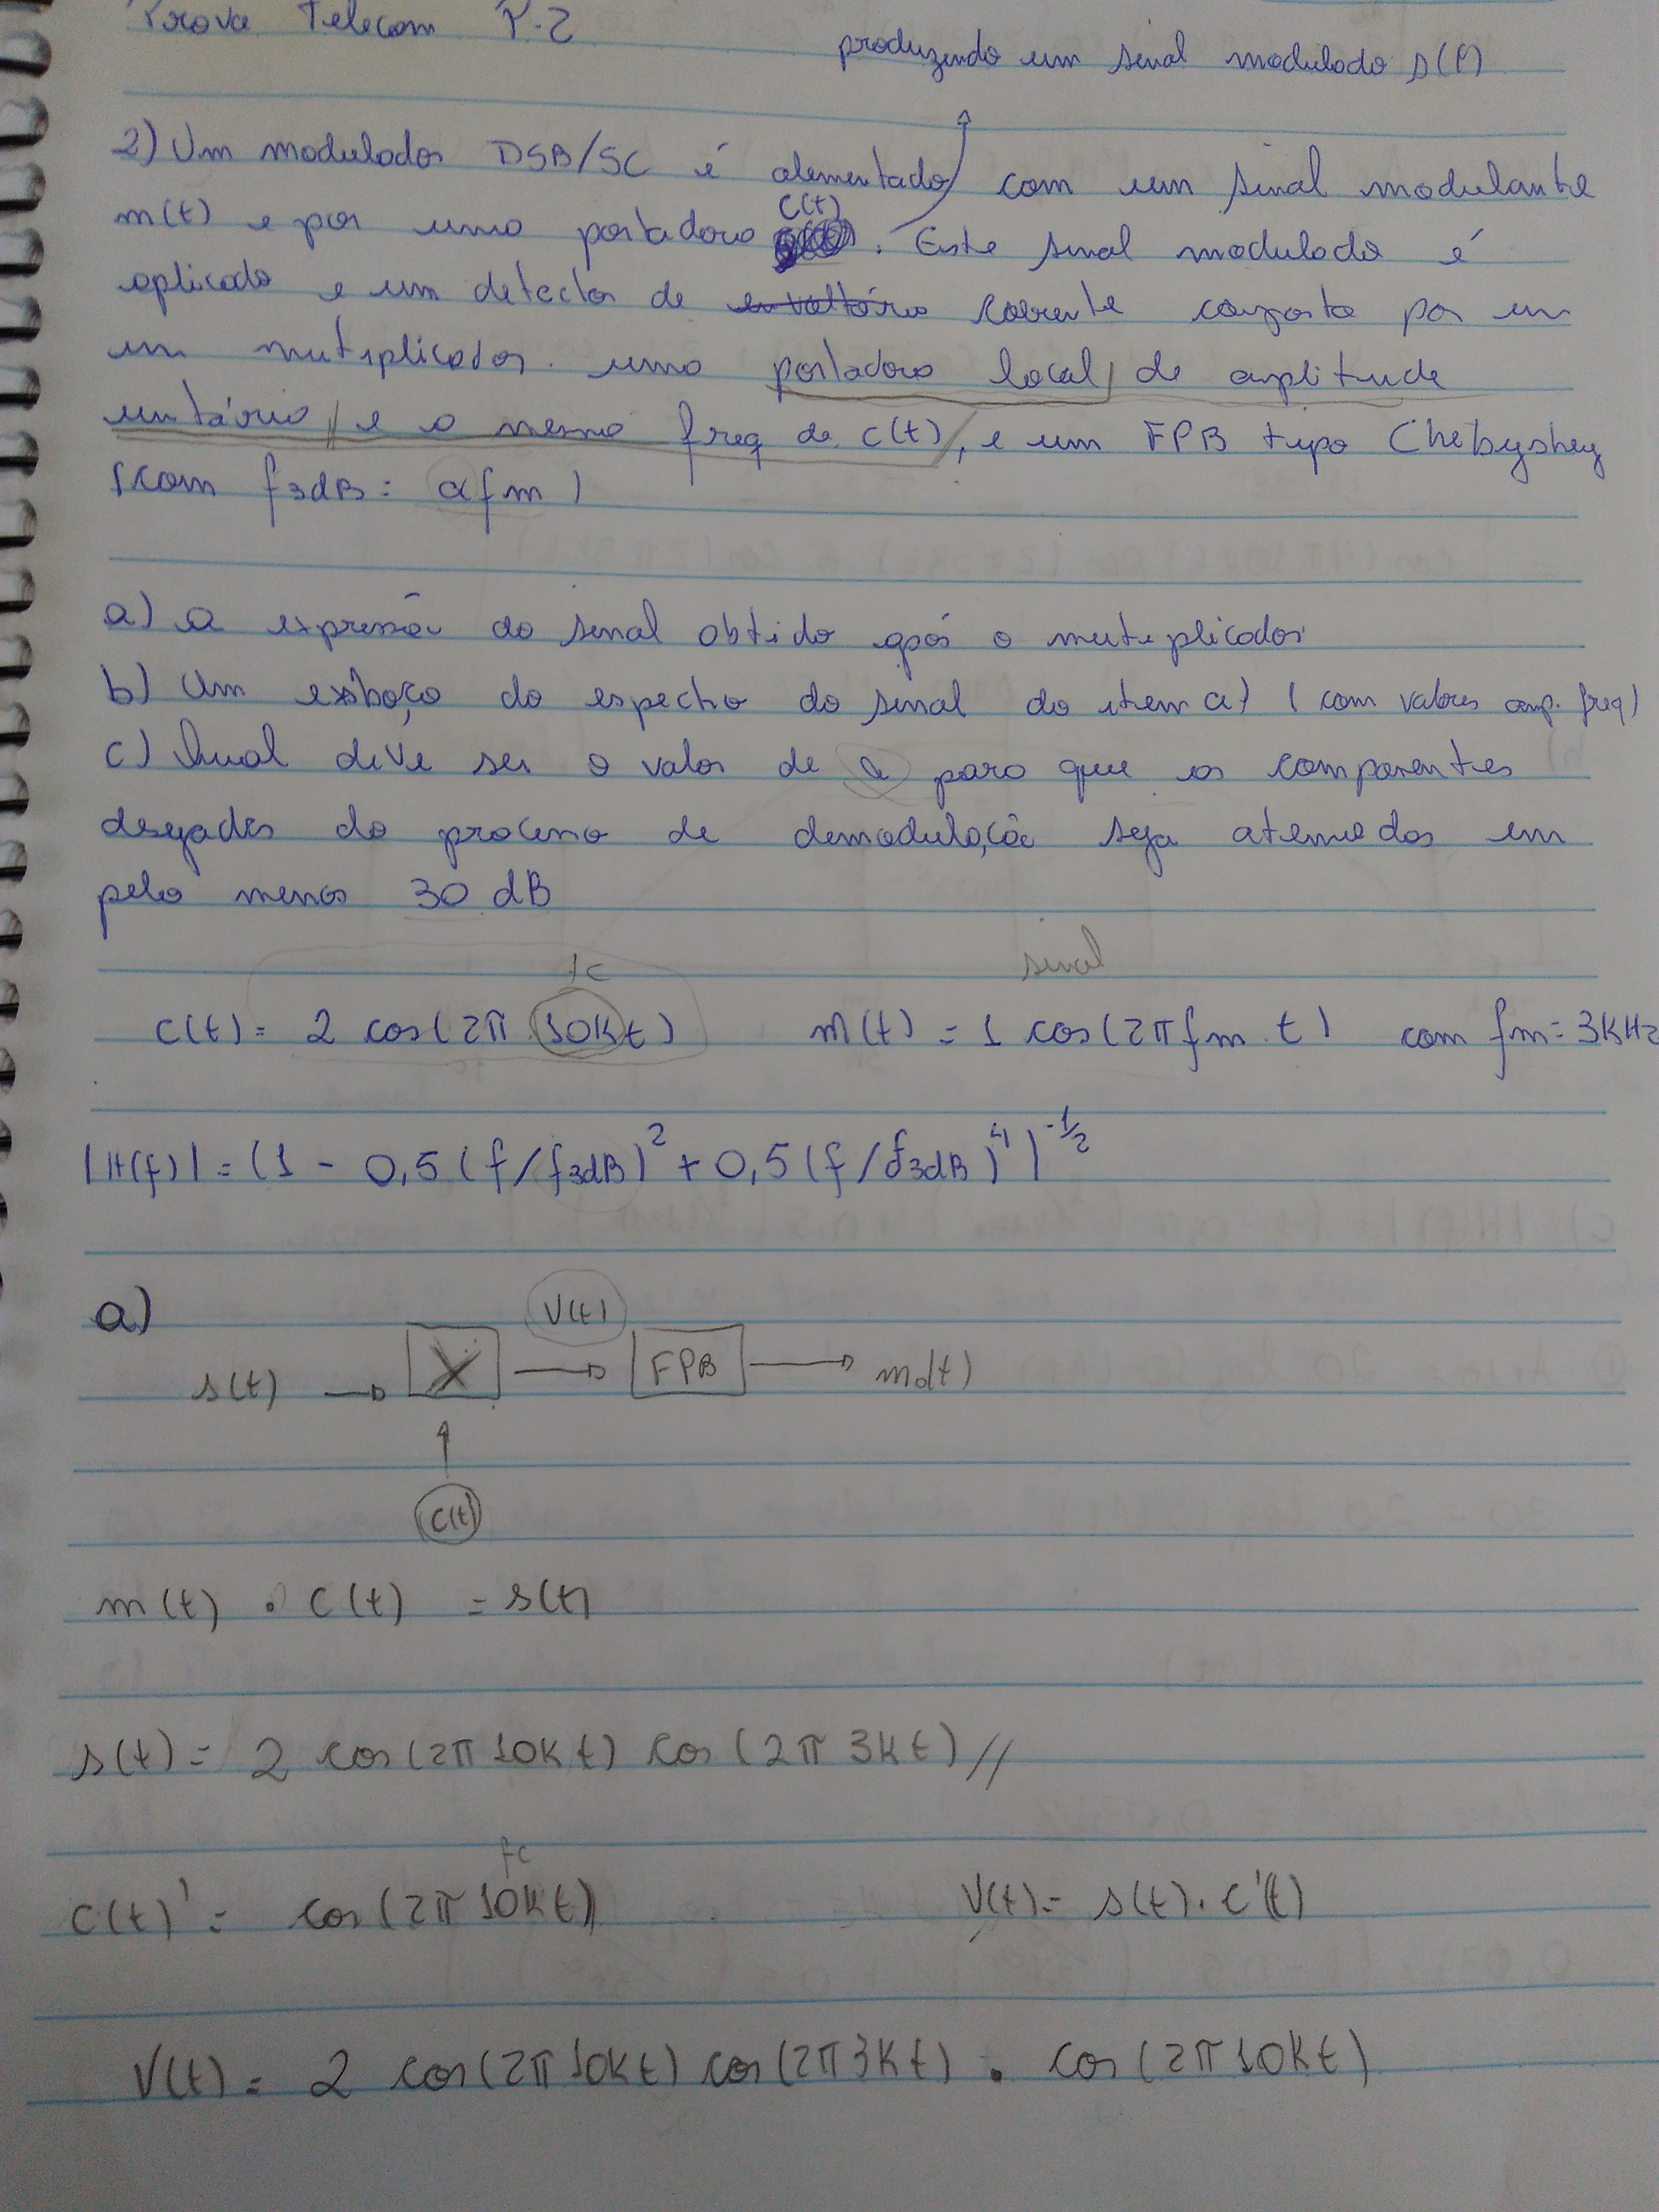 Prova Telecom P-2
produzindo um sinal modulado s(t)
2) Um modulador DSB/SC é alimentado com um sinal modulante
m(t) e por uma portadora c(t). Este sinal modulado é
aplicado a um detector de envoltória coerente composto por um
um mutiplicador. uma portadora local, de amplitude
unitária, e a mesma freq de c(t), e um FPB tipo Chebyshev
(com f3dB: αfm)
a) a expressão do sinal obtido após o mutiplicador
b) Um esboço do espectro do sinal do item a) (com valores amp. freq)
c) Qual deve ser o valor de α para que as componentes
do processo de demodulação seja atenuadas em
pelo menos 30 dB
fc
sinal
c(t) = 2 cos(2π 10Kt) m(t) = 1 cos(2π fm t) com fm = 3KHz
|H(f)| = (1 - 0,5 (f/f3dB)² + 0,5 (f/f3dB)⁴)^-1/2
a)
V(t)
s(t) → X → FPB → mo(t)
c(t)
m(t) . c(t) = s(t)
s(t) = 2 cos(2π 10Kt) cos(2π 3Kt)//
fc
c(t)' = cos(2π 10Kt) V(t) = s(t).c'(t)
V(t) = 2 cos(2π 10Kt) cos(2π 3Kt) . cos(2π 10Kt)